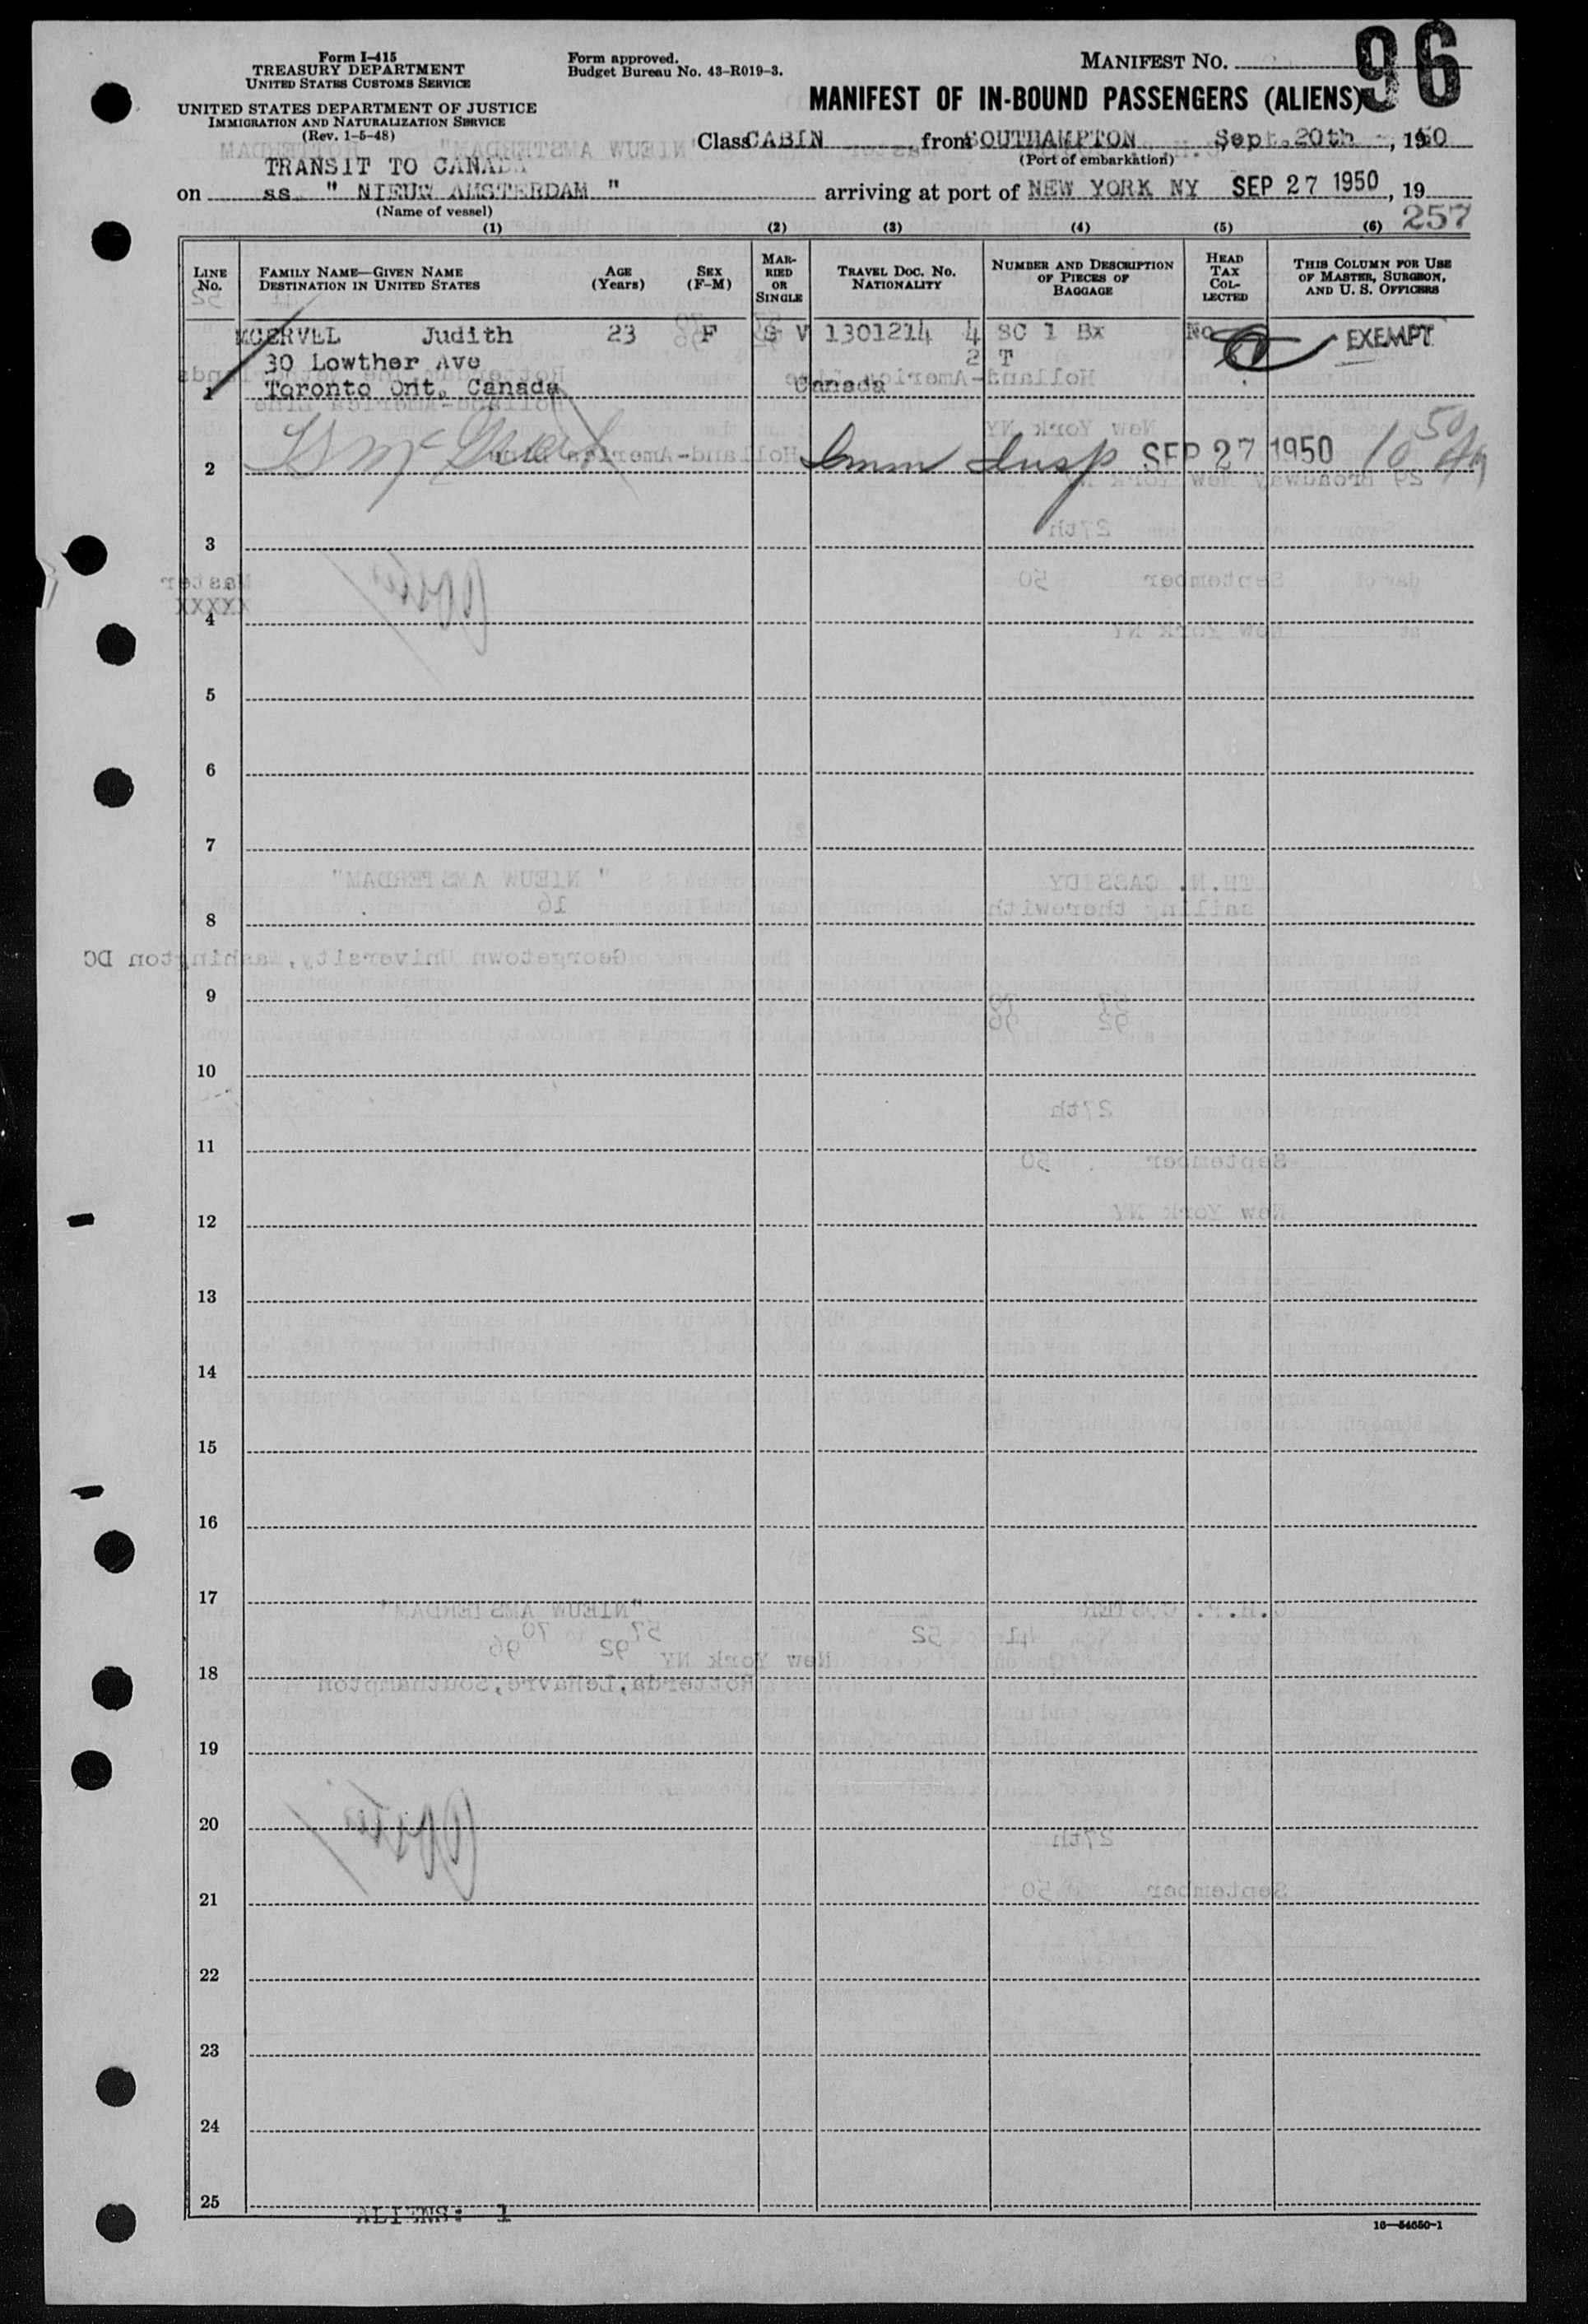 Form I-415
TREASURY DEPARTMENT
UNITED STATES CUSTOMS SERVICE
UNITED STATES DEPARTMENT OF JUSTICE
IMMIGRATION AND NATURALIZATION SERVICE
(Rev. 1-5-48)
Form approved.
Budget Bureau No. 43-R019-3.
MANIFEST NO. 96
MANIFEST OF IN-BOUND PASSENGERS (ALIENS)
Class CABIN from SOUTHAMPTON Sept.20th, 1950
(Port of embarkation)
TRANSIT TO CANADA
on ss " NIEUW AMSTERDAM " arriving at port of NEW YORK NY SEP 27 1950, 19
(Name of vessel)
257
(1) (2) (3) (4) (5) (6)
LINE No. FAMILY NAME—GIVEN NAME DESTINATION IN UNITED STATES AGE (Years) SEX (F-M) MARRIED OR SINGLE TRAVEL DOC. NO. NATIONALITY NUMBER AND DESCRIPTION OF PIECES OF BAGGAGE HEAD TAX COLLECTED THIS COLUMN FOR USE OF MASTER, SURGEON, AND U. S. OFFICERS
Judith 23 F S V 1301214 4 SC 1 Bx No EXEMPT
30 Lowther Ave 2 T
1 Toronto Ont, Canada Canada
2 Imm Insp SEP 27 1950
3
4
5
6
7
8
9
10
11
12
13
14
15
16
17
18
19
20
21
22
23
24
25
ALIENS: 1
16—54650-1